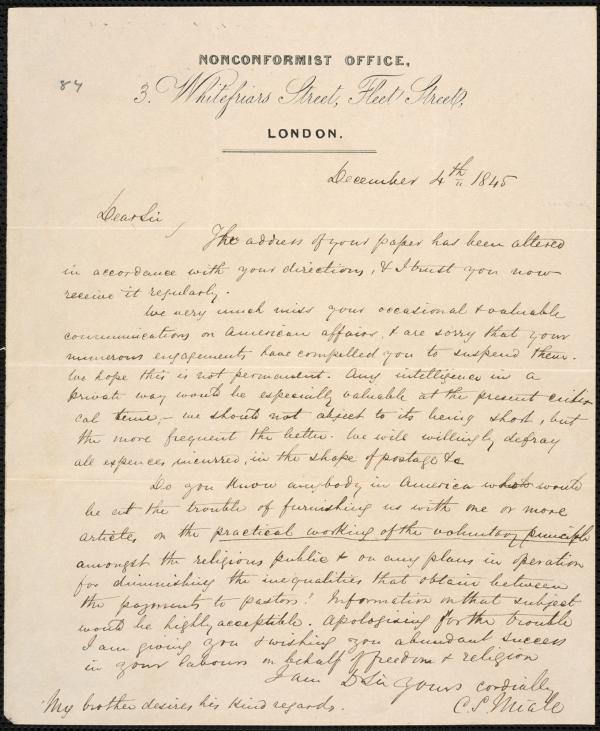 NONCONFORMIST OFFICE,
84
3. Whitefriars Street, Fleet Street,
LONDON.
December 4th 1845
Dear Sir
The address of your paper has been altered
in accordance with your directions, & I trust you now
receive it regularly.
We very much miss your occasional & valuable
communications on American affairs, & are sorry that your
numerous engagements have compelled you to suspend them.
We hope this is not permanent. Any intelligence in a
private way would be especially valuable at the present criti-
cal time,- we should not object to its being short, but
the more frequent the better. We will willingly defray
all espences incurred, in the shape of postage &c
Do you know anybody in America who would
be at the trouble of furnishing us with one or more
articles on the practical working of the voluntary principle
amongst the religious public & on any plans in operation
for diminishing the inequalities that obtain between
the payments to pastors? Information on that subject
would be highly acceptible. Apologising for the trouble
I am giving you & wishing you abundant success
in your labours on behalf of freedom & religion
I am D Sir yours cordially
C. S. Miall
My brother desires his kind regards.